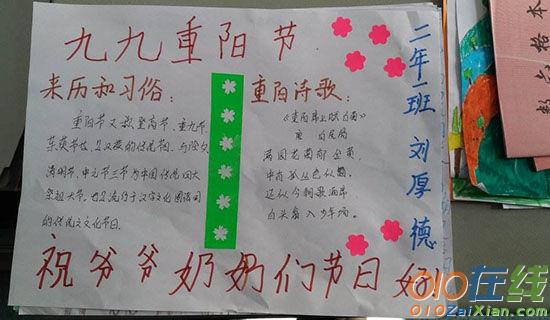 九九重阳节
来历和习俗：
重阳节又称登高节、重九节、
茱萸节、是汉族的传统节日。与除夕、
清明节、中元节三节为中国传统四大
祭祖大节。也是流行于汉字文化圈诸国
的传统文化节日。
重阳诗歌：
《重阳席上赋白菊》
唐 白居易
满园花菊郁金黄，
中有孤丛色似霜。
还似今朝歌酒席
白头翁入少年场。
二年一班 刘厚德
祝爷爷奶奶们节日好
格本
010在线
010ZaiXian.com